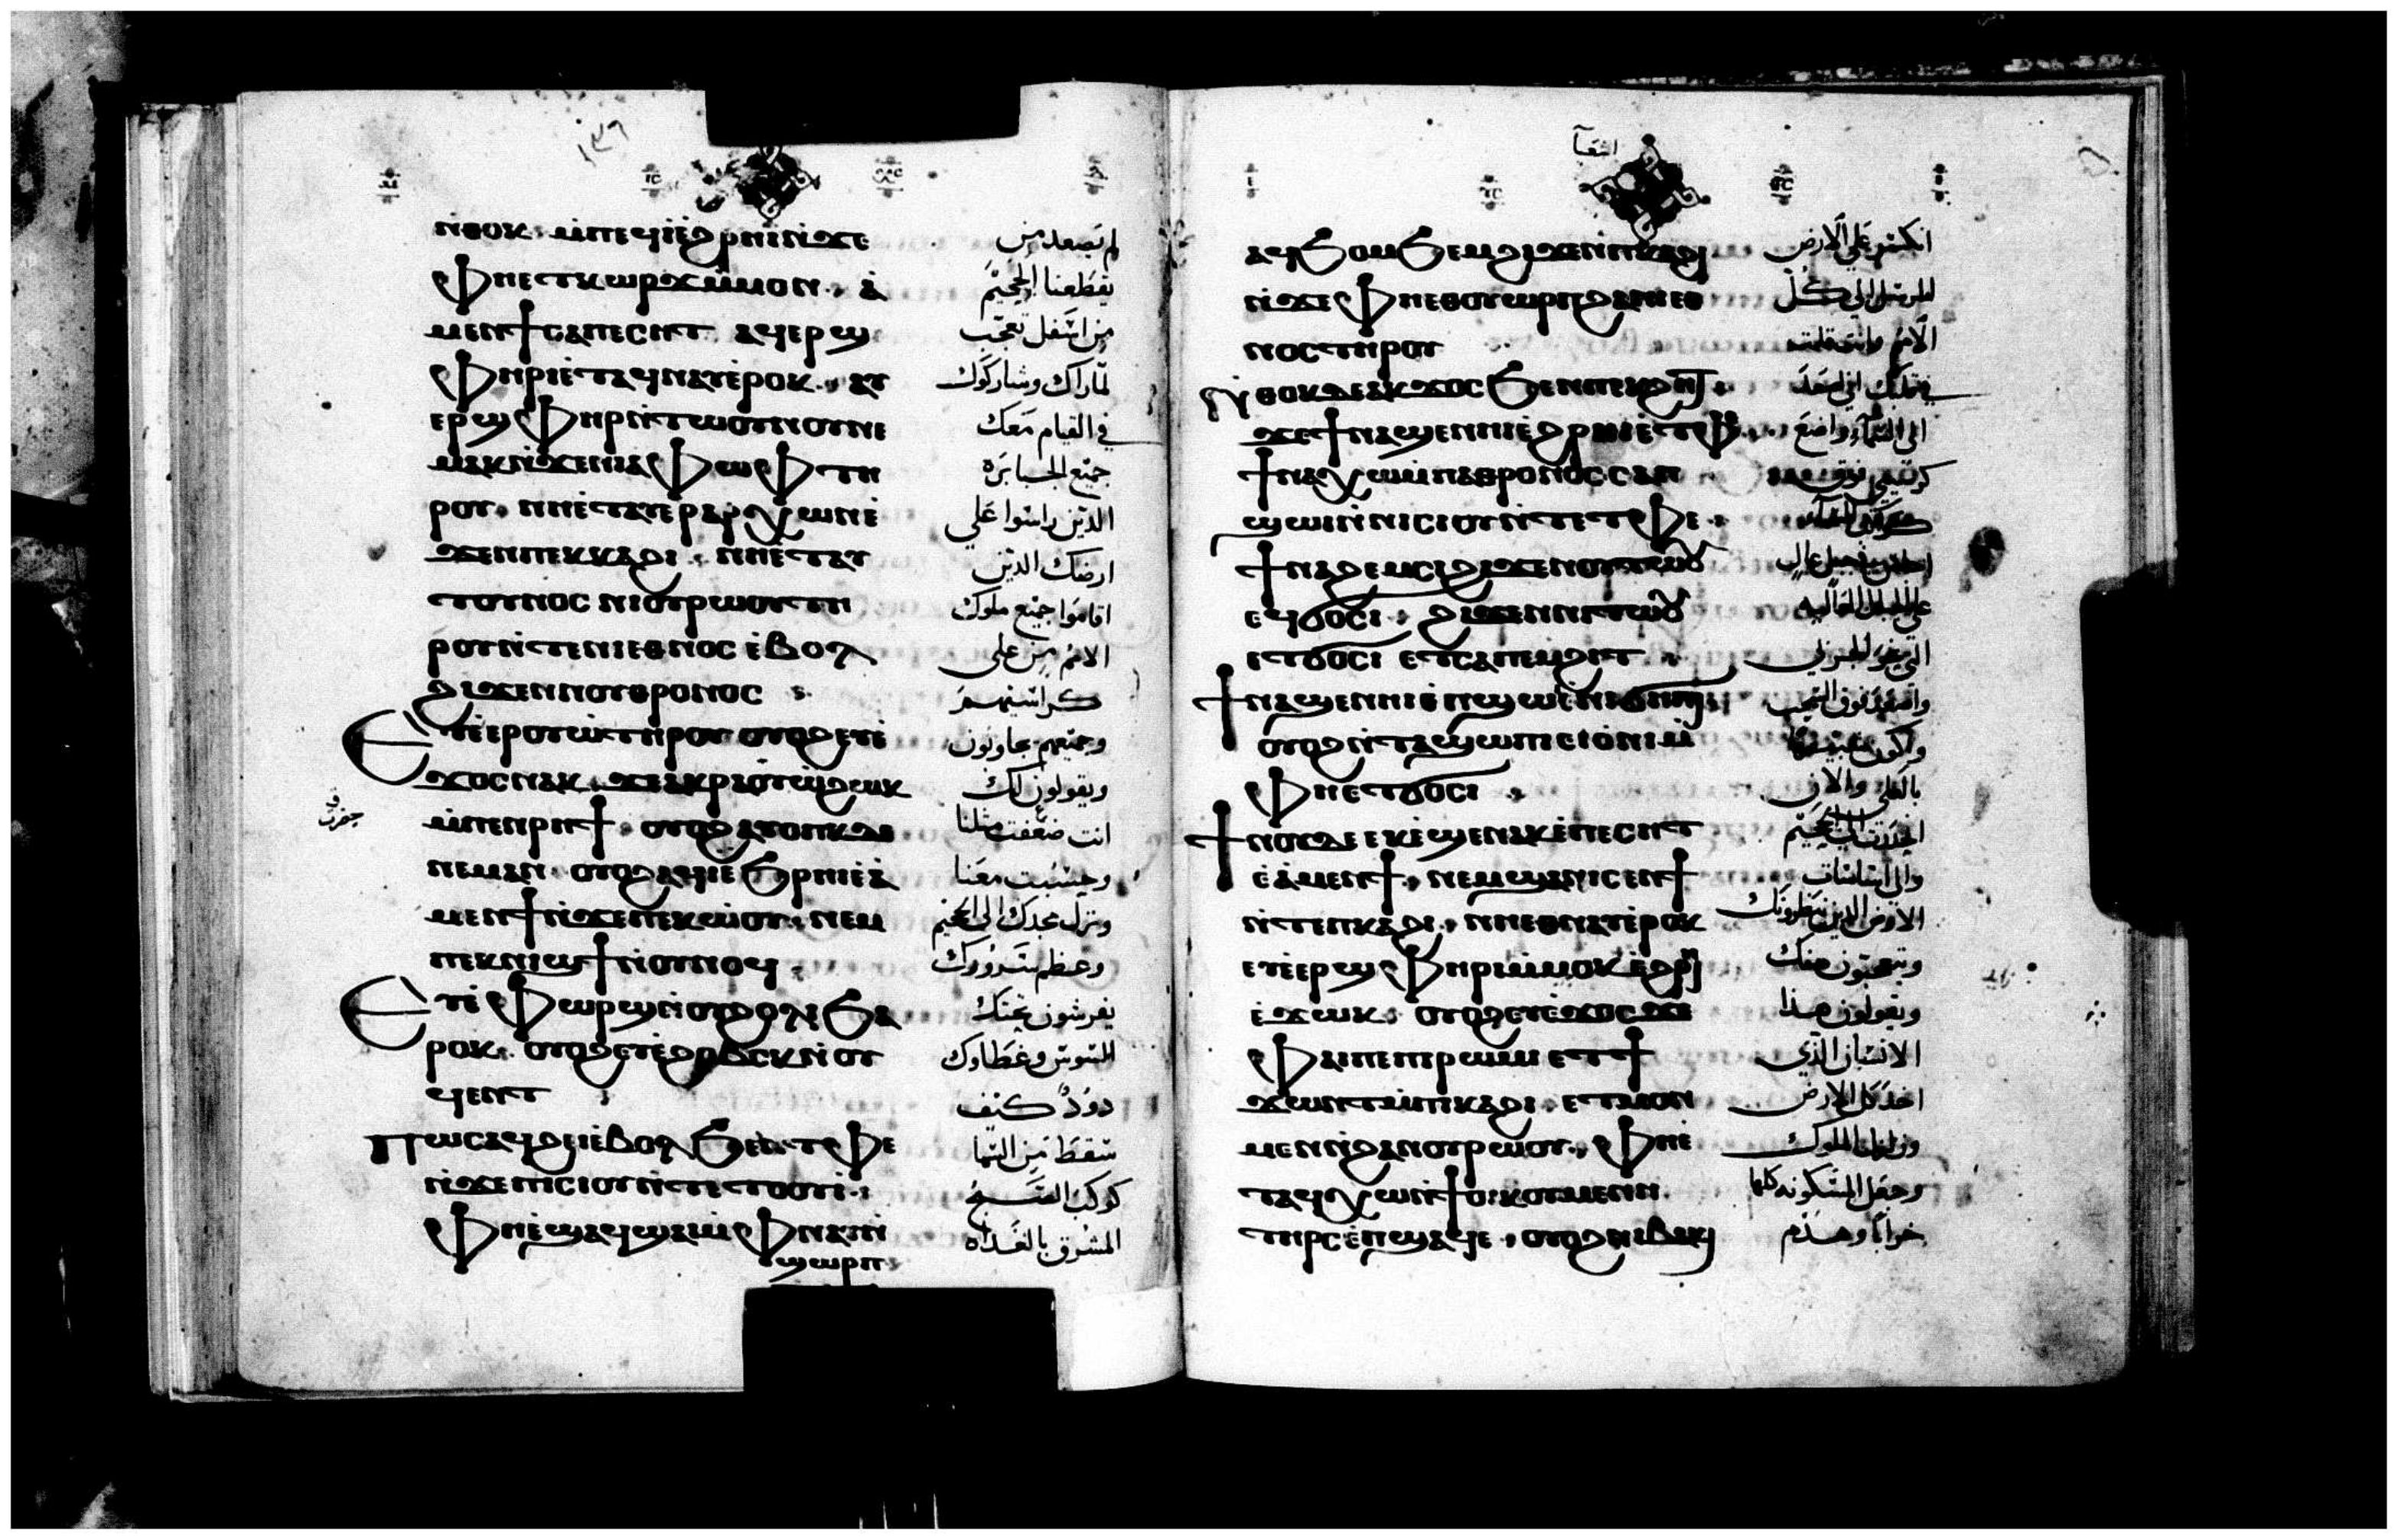 ⲛ̀ⲑⲟⲕ ⲙ̀ⲡⲉϥⲓ̀ ⲉ̀ϩⲣⲏⲓ ⲛ̀ϫⲉ
ⲫⲏⲉⲧⲕⲱⲣϫ ⲙ̀ⲙⲟⲛ ⲁ̀
ⲙⲉⲛϯ ⲥⲁⲡⲉⲥⲏⲧ ⲁϥⲉⲣϣ
ⲫⲏⲣⲓ ⲉ̀ⲧⲁϥⲛⲁⲩ ⲉ̀ⲣⲟⲕ ⲁⲩ
ⲉⲣϣⲫⲏⲣ ⲛ̀ⲧⲱⲟⲩⲛⲟⲩ ⲛⲉ
ⲙⲁⲕ ⲛ̀ϫⲉⲛⲓⲁⲫⲱⲫ ⲧⲏ
ⲣⲟⲩ ⲛⲏⲉ̀ⲧⲁⲩⲉⲣⲁⲣⲭⲱⲛ ⲉ̀
ϫⲉⲛⲡⲉⲕⲕⲁϩⲓ ⲛⲏⲉ̀ⲧⲁⲩ
ⲧⲟⲩⲛⲟⲥ ⲛⲓⲟⲩⲣⲱⲟⲩ ⲧⲏ
ⲣⲟⲩ ⲛ̀ⲧⲉⲛⲓⲉⲑⲛⲟⲥ ⲉ̀ⲃⲟⲗ
ϩⲓϫⲉⲛⲛⲟⲩⲑⲣⲟⲛⲟⲥ
ⲉⲩⲉ̀ⲉⲣⲟⲩⲱ̀ ⲧⲏⲣⲟⲩ ⲟⲩⲟϩ ⲉⲩⲉ̀
ϫⲟⲥ ⲛⲁⲕ
ⲙ̀ⲡⲉⲛⲣⲏϯ ⲟⲩⲟϩ ⲁⲩⲟⲡⲕ
ⲛⲉⲙⲁⲛ ⲟⲩⲟϩ ⲁϥⲓ̀ ⲉϧⲣⲏⲓ ⲉ̀ⲁ̀
ⲙⲉⲛϯ ⲛ̀ϫⲉⲡⲉⲕⲱ̀ⲟⲩ ⲛⲉⲙ
ⲡⲉⲕⲛⲓϣϯ ⲛ̀ⲟⲩⲛⲟϥ
ⲉⲩⲉ̀ⲫⲱⲣϣ ⲛ̀ⲟⲩϩⲟⲗⲓ ϧⲁ
ⲣⲟⲕ ⲟⲩⲟϩ ⲉⲩⲉ̀ϩⲟⲃⲥⲕ ⲛ̀ⲟⲩ
ϥⲉⲛⲧ
ⲡⲱⲥ ⲁϥϩⲉⲓ ⲉ̀ⲃⲟⲗ ϧⲉⲛⲧⲫⲉ
ⲛ̀ϫⲉⲡⲓⲥⲓⲟⲩ ⲛ̀ⲧⲉⲧⲟⲟⲩⲓ
ⲫⲏⲉ̀ϣⲁϥϣⲁⲓ ⲙ̀ⲫⲛⲁⲩ ⲛ̀
ϣⲱⲣⲡ
١٣٦
لم يصعد من
يقطعنا الجحيم
من اسفل تعجب
لما راك وشاركوك
في القيام معك
جميع الجبابره
الذين راسوا علي
ارضك الذين
اقاموا جميع ملوك
الامم من علي
كراسيهم
وجميعهم يجاوبون
ويقولون لك
انت ضعفت مثلنا
وحسبت معنا
ونزل مجدك الي الجحيم
وعظم سرورك
يفرشون تحتك
السوس وغطاوك
دود كنيف
سقط من السما
كوكب الصبح
المشرق بالغداه
اشعيا
ⲁϥϧⲟⲙϧⲉⲙ ϩⲓϫⲉⲛⲡⲕⲁϩⲓ
ⲛ̀ϫⲉⲫⲏⲉⲑⲟⲩⲱⲣⲡ ϩⲁⲛⲓⲉⲑ
ⲛⲟⲥ ⲧⲏⲣⲟⲩ
ⲛ̀ⲑⲟⲕ ⲇⲉ ⲁⲕϫⲟⲥ ϧⲉⲛⲡⲉⲕϩⲏⲧ
ϫⲉ ϯⲛⲁϣⲉⲛⲏⲓ ⲉ̀ϩⲣⲏⲓ ⲉ̀ⲧⲫⲉ
ϯⲛⲁⲭⲱ ⲙ̀ⲡⲁⲑⲣⲟⲛⲟⲥ ⲥⲁⲡ
ϣⲱⲓ ⲛ̀ⲛⲓⲥⲓⲟⲩ ⲛ̀ⲧⲉⲧⲫⲉ
ϯⲛⲁϩⲉⲙⲥⲓ ϩⲓϫⲉⲛⲟⲩⲧⲱⲟⲩ
ⲉϥϭⲟⲥⲓ ϩⲓϫⲉⲛⲛⲓⲧⲱⲟⲩ
ⲉⲧϭⲟⲥⲓ ⲉⲧⲥⲁⲡⲉⲙϩⲓⲧ
ϯⲛⲁϣⲉⲛⲏⲓ ⲉ̀ⲡϣⲱⲓ ⲛ̀ⲛⲓϭⲏⲡⲓ
ⲟⲩⲟϩ ⲛ̀ⲧⲁϣⲱⲡⲓ ⲉⲓⲟ̀ⲛⲓ ⲙ̀
ⲫⲏⲉⲧϭⲟⲥⲓ
ϯⲛⲟⲩ ⲇⲉ ⲉⲕⲉ̀ϣⲉⲛⲁⲕ ⲉ̀ⲡⲉⲥⲏⲧ
ⲉ̀ⲁ̀ⲙⲉⲛϯ ⲛⲉⲙ ϣⲁⲛⲓⲥⲉⲛϯ
ⲛ̀ⲧⲉⲡⲕⲁϩⲓ ⲛⲏⲉⲑⲛⲁⲩ ⲉ̀ⲣⲟⲕ
ⲉⲩⲉ̀ⲉⲣϣⲫⲏⲣⲓ ⲙ̀ⲙⲟⲕ ⲉ̀ϩⲣⲏⲓ
ⲉ̀ϫⲱⲕ ⲟⲩⲟϩ ⲉⲩⲉ̀ϫⲟⲥ ϫⲉ
ⲫⲁⲓ ⲡⲉ ⲡⲓⲣⲱⲙⲓ ⲉⲧϯ
ϫⲱⲛⲧ ⲙ̀ⲡⲕⲁϩⲓ ⲉⲧⲙⲟⲛ
ⲙⲉⲛ ⲛ̀ϩⲁⲛⲟⲩⲣⲱⲟⲩ ⲫⲏⲉ̀
ⲧⲁϥⲭⲱ ⲛ̀ϯⲟⲓⲕⲟⲩⲙⲉⲛⲏ
ⲧⲏⲣⲥ ⲉ̀ⲡϣⲁϥⲉ ⲟⲩⲟϩ ⲛⲓⲃⲁⲕⲓ
انكسر علي الارض
المرسل الي كل
الامم وانت قلت
في قلبك اني اصعد
الي السما واضع
كرسيي فوق
كواكب السما
اجلس في جبل عال
علي الجبال العاليه
واصعد فوق السحب
واكون شبيها
بالعلي والان
والي اساسات
الارض الذين ينظرونك
ويتعجبون منك
ويقولون هذا
الانسان الذي
وجعل المسكونه كلها
خرابا وهدم